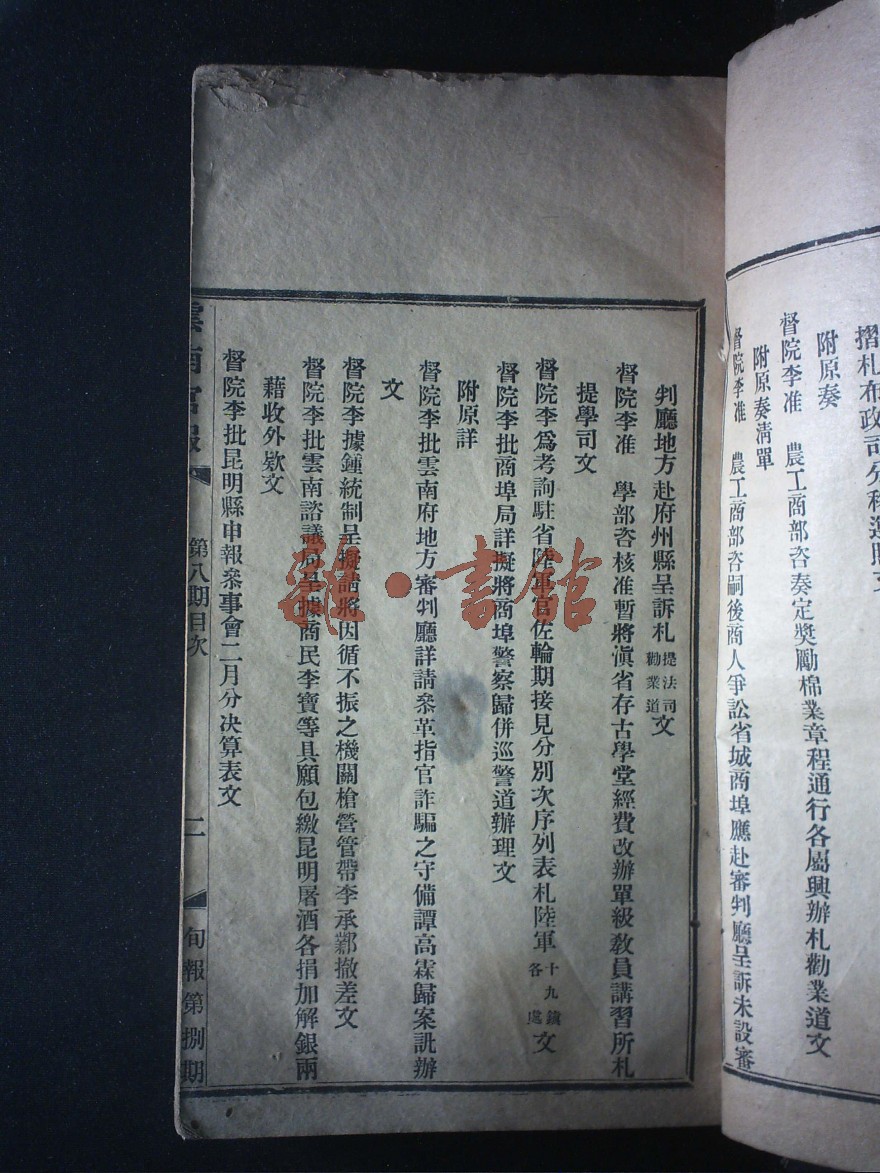 摺札布政司分科選照文
附原奏
督院李准　農工商部咨奏定獎勵棉業章程通行各屬興辦札勸業道文
附原奏清單
督院李准　農工商部咨嗣後商人爭訟省城商埠應赴審判廳呈訴未設審
判廳地方赴府州縣呈訴札提法司勸業道文
督院李准　學部咨核准暫將滇省存古學堂經費改辦單級敎員講習所札
提學司文
督院李爲考詢駐省陸軍官佐輪期接見分別次序列表札陸軍十九鎮各處文
督院李批商埠局詳擬將商埠警察歸併巡警道辦理文
附原詳
督院李批雲南府地方審判廳詳請叅革指官詐騙之守備譚高霖歸案訊辦
文
督院李據鍾統制呈擬請將因循不振之機關槍營管帶李承鄴撤差文
督院李批雲南諮議局呈據商民李寶等具願包繳昆明屠酒各捐加解銀兩
藉收外欵文
督院李批昆明縣申報叅事會二月分決算表文
雲南官報
第八期目次
二
旬報第捌期
雜·書館